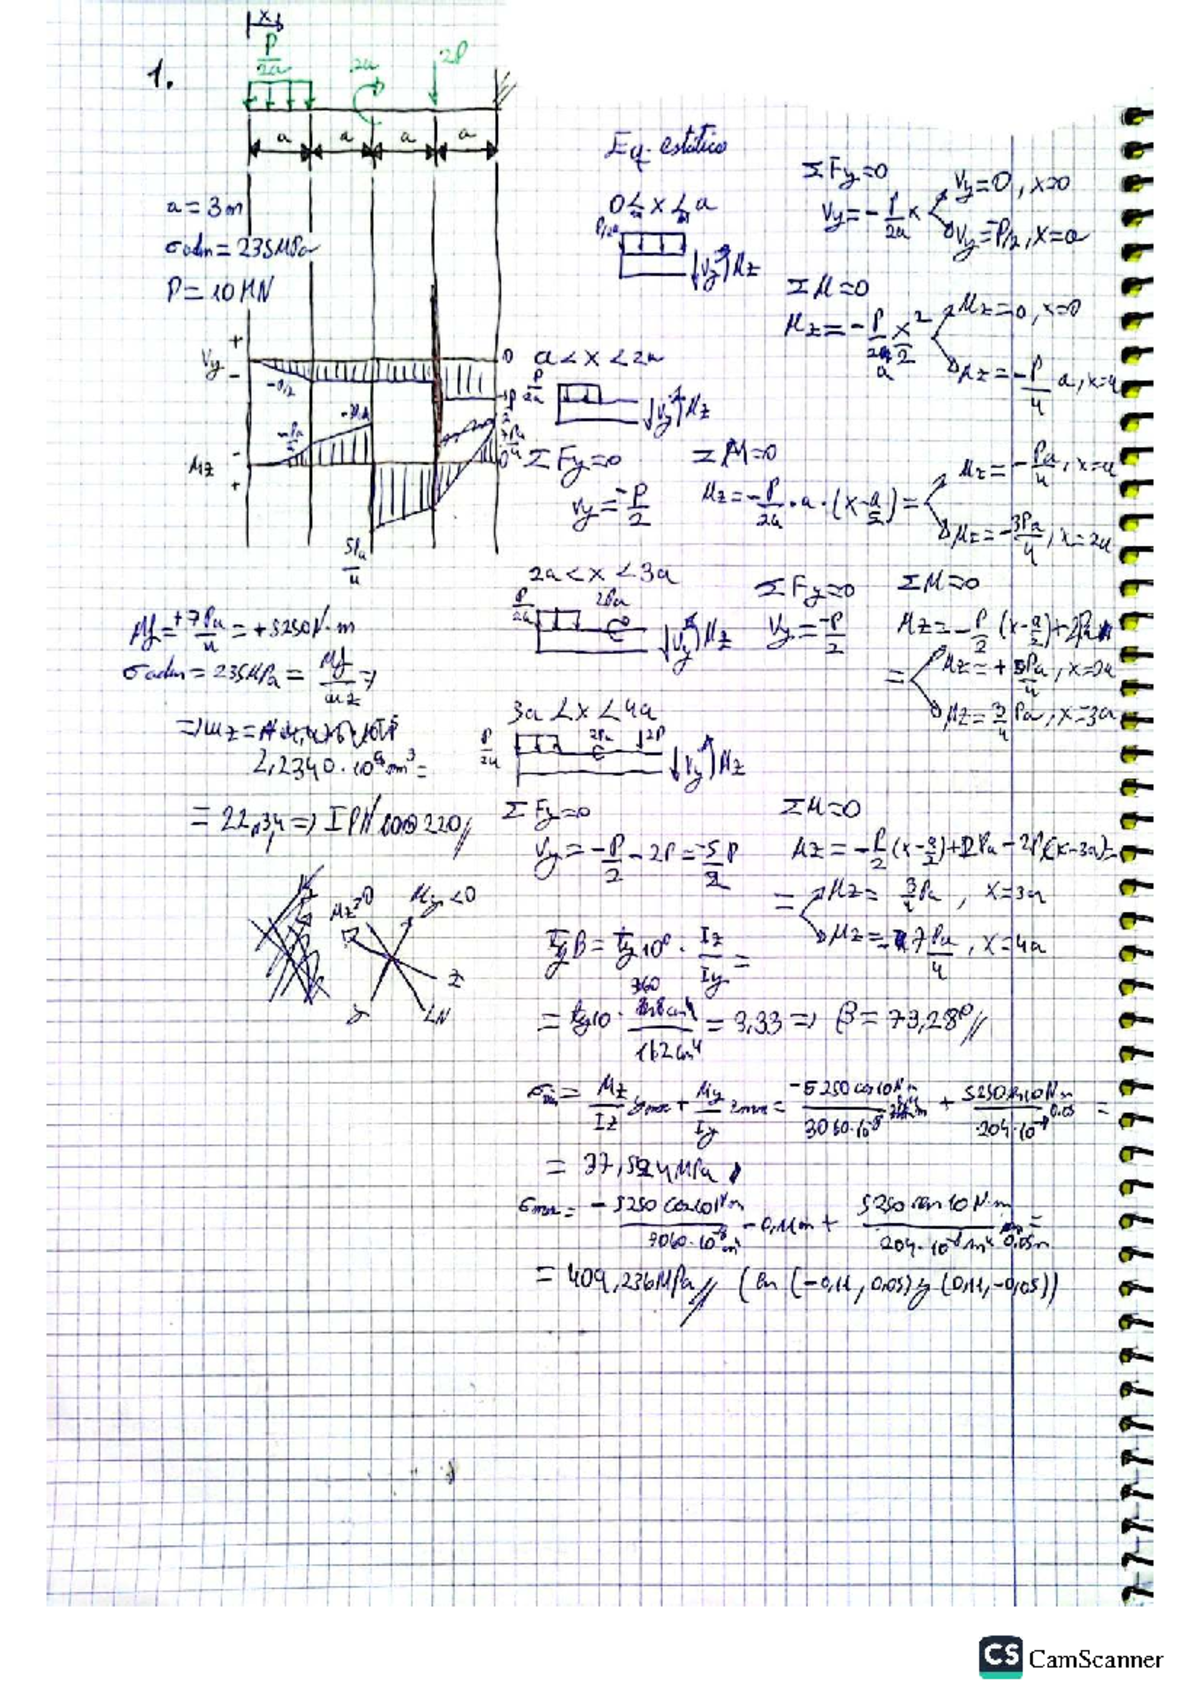 x
P/2a
2a
2P
1.
a a a a
a = 3m
σadm = 235MPa
P = 10 KN
Eq. estático
0 ≤ x ≤ a
P/2a
Vy Mz
ΣFy=0
Vy = -P/2a x
Vy=0, x=0
Vy=-P/2, x=a
ΣM=0
Mz = -P/2a x²/2
Mz=0, x=0
Mz=-P/4 a, x=a
+
Vy
-
0
-P/2
a < x < 2a
P/2a
Vy Mz
-
Mz
+
0
5Pa/4
ΣFy=0
Vy=-P/2
ΣM=0
Mz=-P/2a·a·(x-a/2)=
Mz=-Pa/4, x=a
Mz=-3Pa/4, x=2a
2a < x < 3a
P/2a
2Pa
Vy Mz
ΣFy=0
Vy=-P/2
ΣM=0
Mz=-P/2(x-a/2)+2Pa
=
Mz=+5Pa/4, x=2a
Mz=3/4 Pa, x=3a
Mf=+7Pa/4 = +5250N·m
σadm = 235MPa = Mf/wz =>
=> wz =
2,2340·10⁴mm³ =
= 22,34 => IPN 220//
3a < x < 4a
P/2a
2Pa
2P
Vy Mz
ΣFy=0
Vy=-P/2-2P=-5/2P
ΣM=0
Mz=-P/2(x-a/2)+2Pa-2P(x-3a)=
=
Mz= 3/4Pa, x=3a
Mz=-7Pa/4, x=4a
Mz>0
My<0
z
y
LN
Tg β = tg10º · Iz/Iy =
= tg10 · 3060/162cm⁴ = 3,33 => β = 73,28º//
σmin = Mz/Iz ymax + My/Iy zmax = -5250cos10N·m/3060·10⁻⁸ + 5250sen10N·m/204·10⁻⁸ 0,05 =
= 37,524MPa
σmax = -5250cos10N·m/3060·10⁻⁸m⁴ -0,11m + 5250sen10N·m/204·10⁻⁸m⁴ 0,05m =
= 409,236MPa// (en (-0,11, 0,05) y (0,11,-0,05))
CS CamScanner